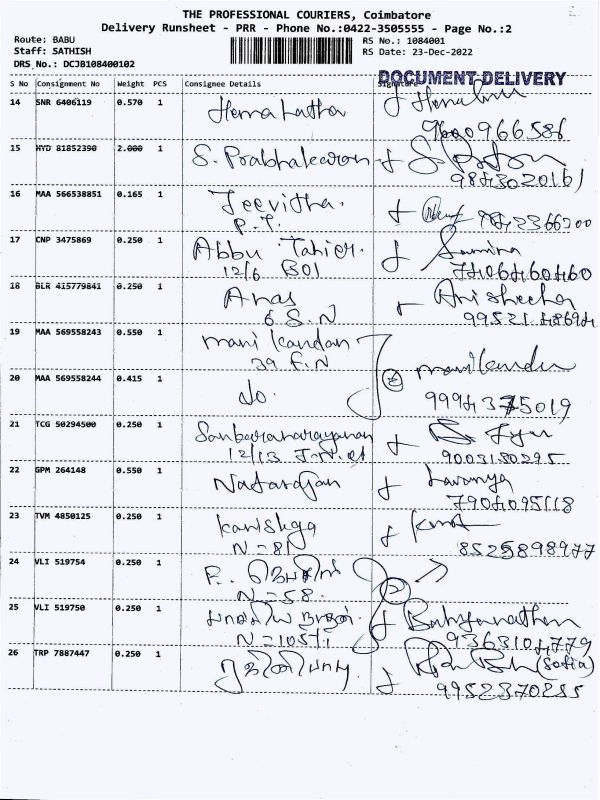 THE PROFESSIONAL COURIERS, Coimbatore
Delivery Runsheet - PRR - Phone No.:0422-3505555 - Page No.:2
Route: BABU
RS No.: 1084001
Staff: SATHISH
RS Date: 23-Dec-2022
DRS No.: DCJB108400102
DOCUMENT DELIVERY
S No Consignment No Weight PCS Consignee Details Signature
14 SNR 6406119 0.570 1 Hema Latha
9600966586
15 HYD 81852390 2.000 1 S. Prabhakaran
9843020161
16 MAA 566538851 0.165 1 Jeevitha.
P.T. 9842366200
17 CNP 3475869 0.250 1 Abbu Tahier.
12/6 BO1 7406460460
18 BLR 415779841 0.250 1 Anas
6 S.N
19 MAA 569558243 0.550 1 mani kandan
39 F.N
20 MAA 569558244 0.415 1 do. 2 manikandan
9994375019
21 TCG 50294500 0.250 1 Sankaranarayanan
12/13 9003180295
22 GPM 264148 0.550 1 Natarajan Lavanya
7904095118
23 TVM 4850125 0.250 1 Kanishga
N=81 8525898977
24 VLI 519754 0.250 1
N=58. 2
25 VLI 519750 0.250 1
9363104779
26 TRP 7887447 0.250 1 (Sofia)
9952370255